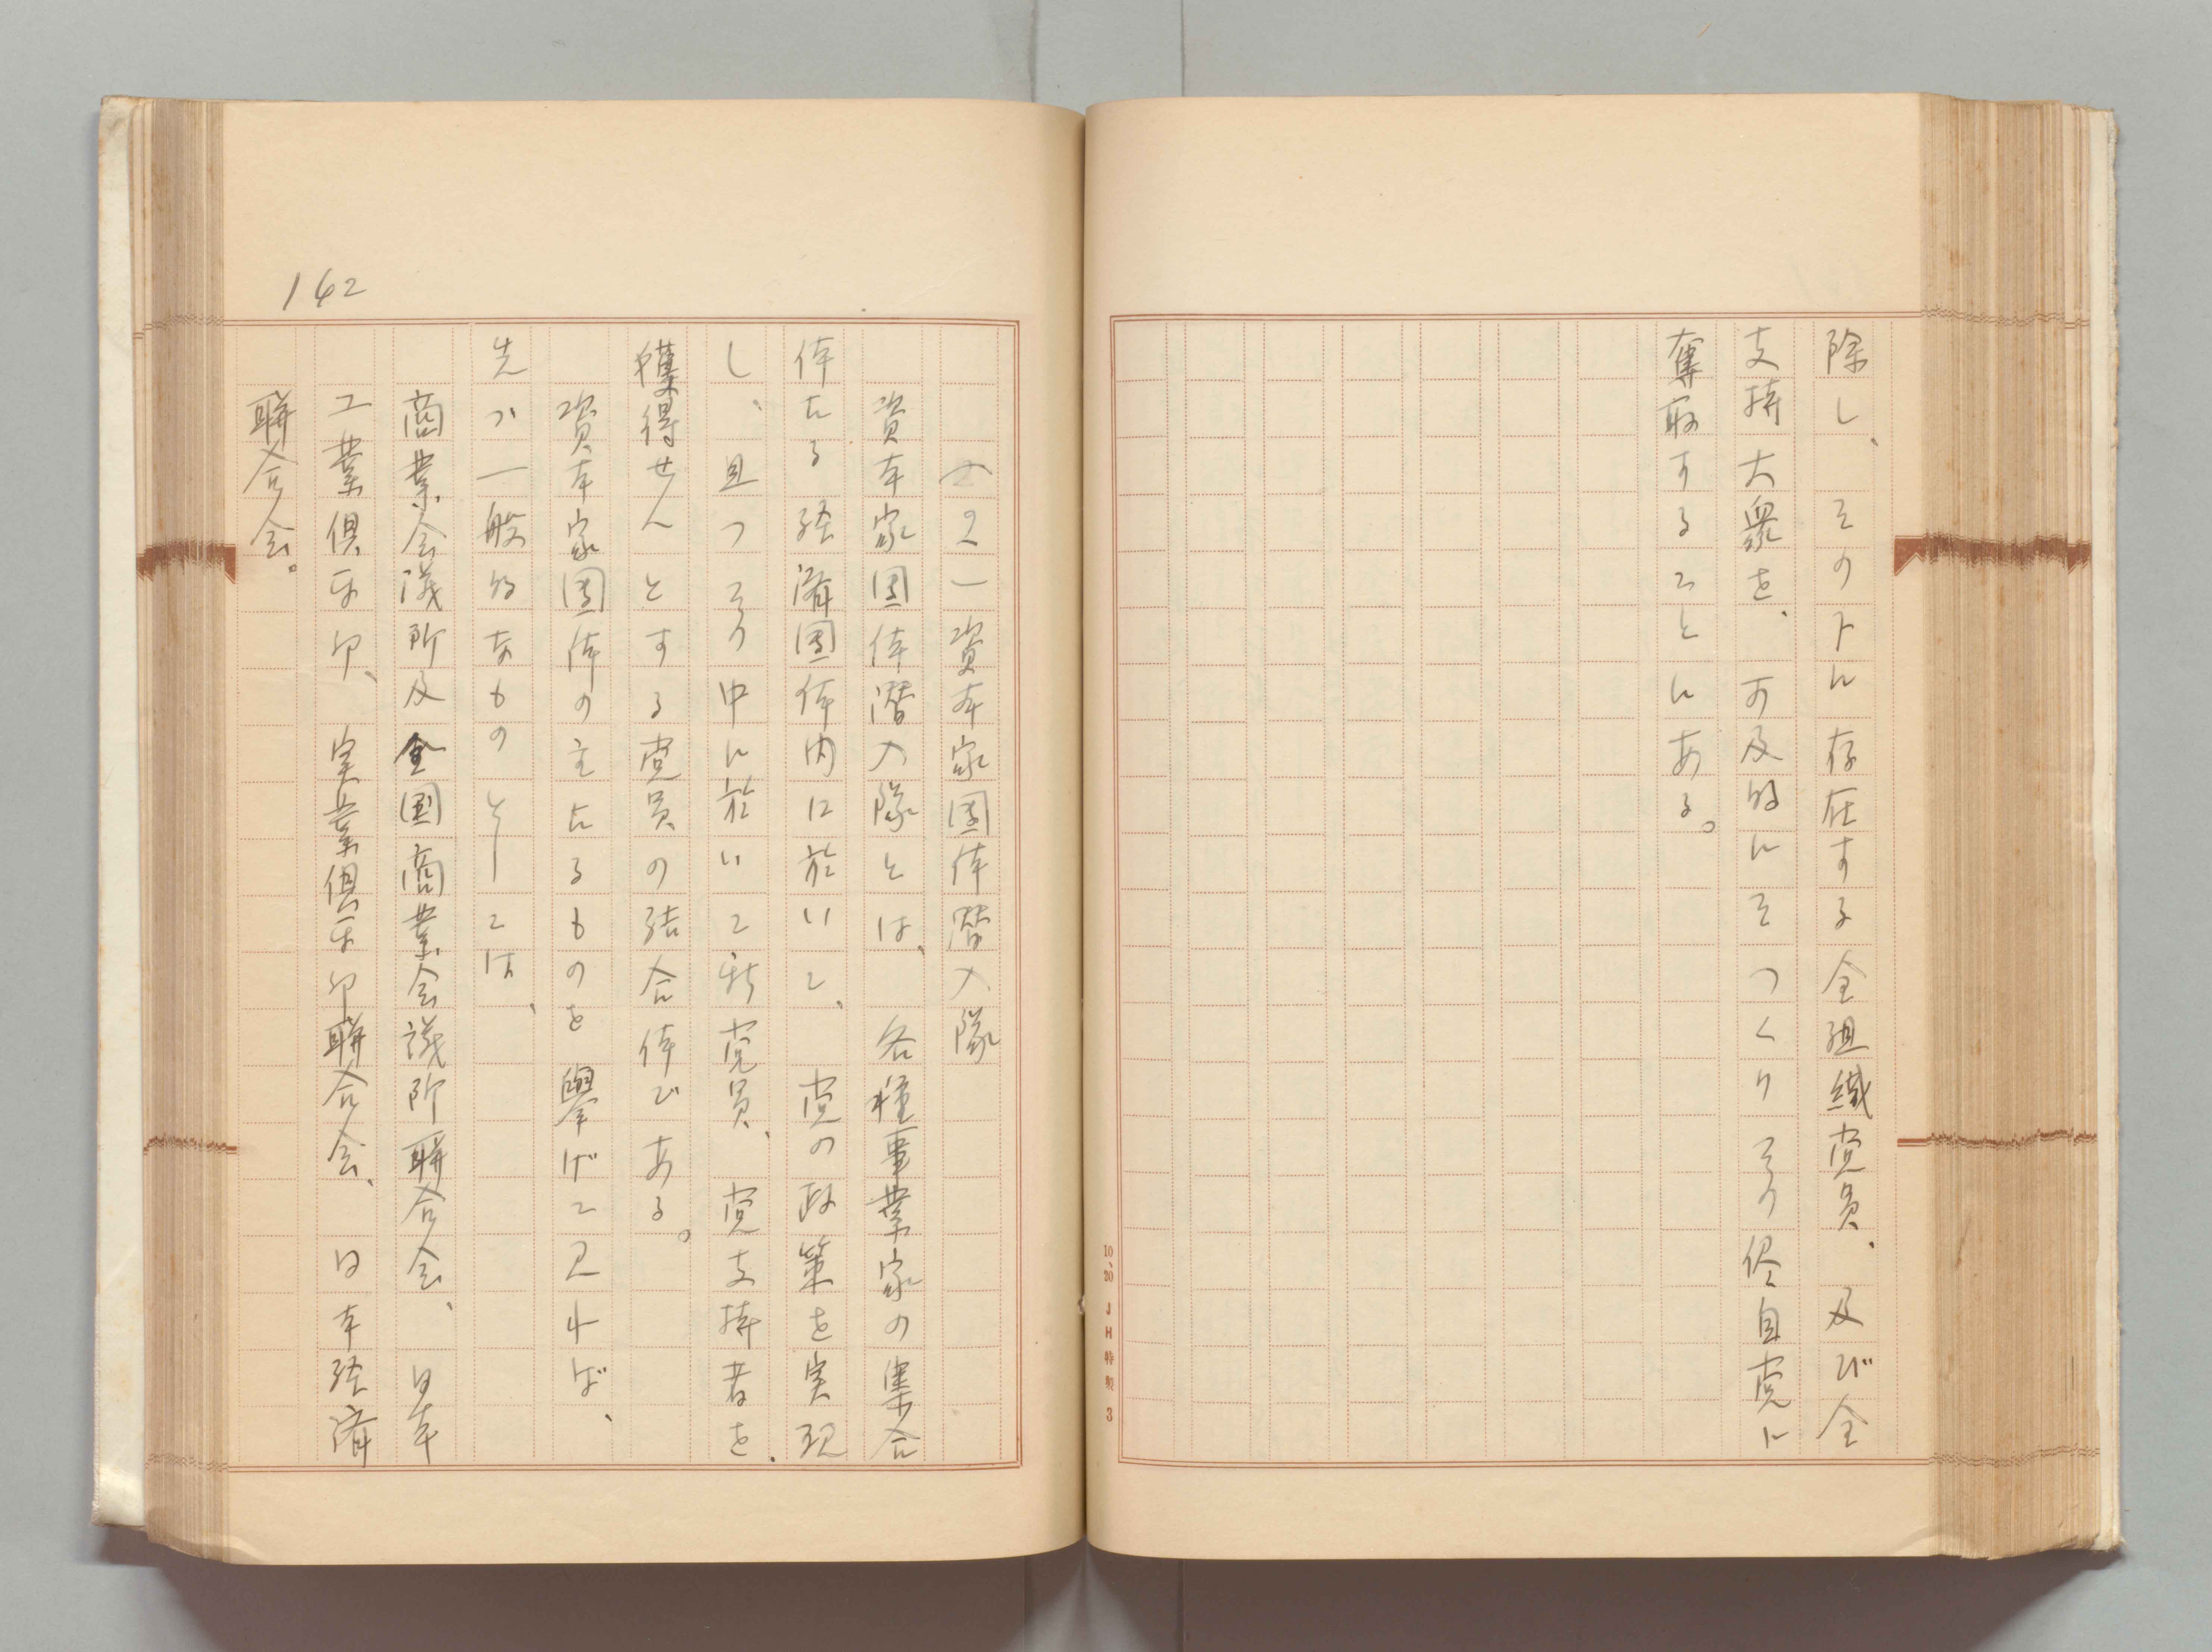 除し、その下に存在する全組織党員、及び全
支持大衆を、可及的にそつくりその侭自党に
奪取することにある。
10、20 JH特製 3
の一資本家団体潜入隊
資本家団体潜入隊とは、各種事業家の集合
体たる経済団体内に於いて、党の政策を実現
し、且つその中に於いて新党員、党支持者を、
獲得せんとする党員の結合体である。
資本家団体の主たるものを擧げて見れば、
先づ一般的なものとしては、
商業会議所及全国商業会議所聯合会、日本
工業倶楽部、実業倶楽部聯合会、日本経済
聯合会。
162